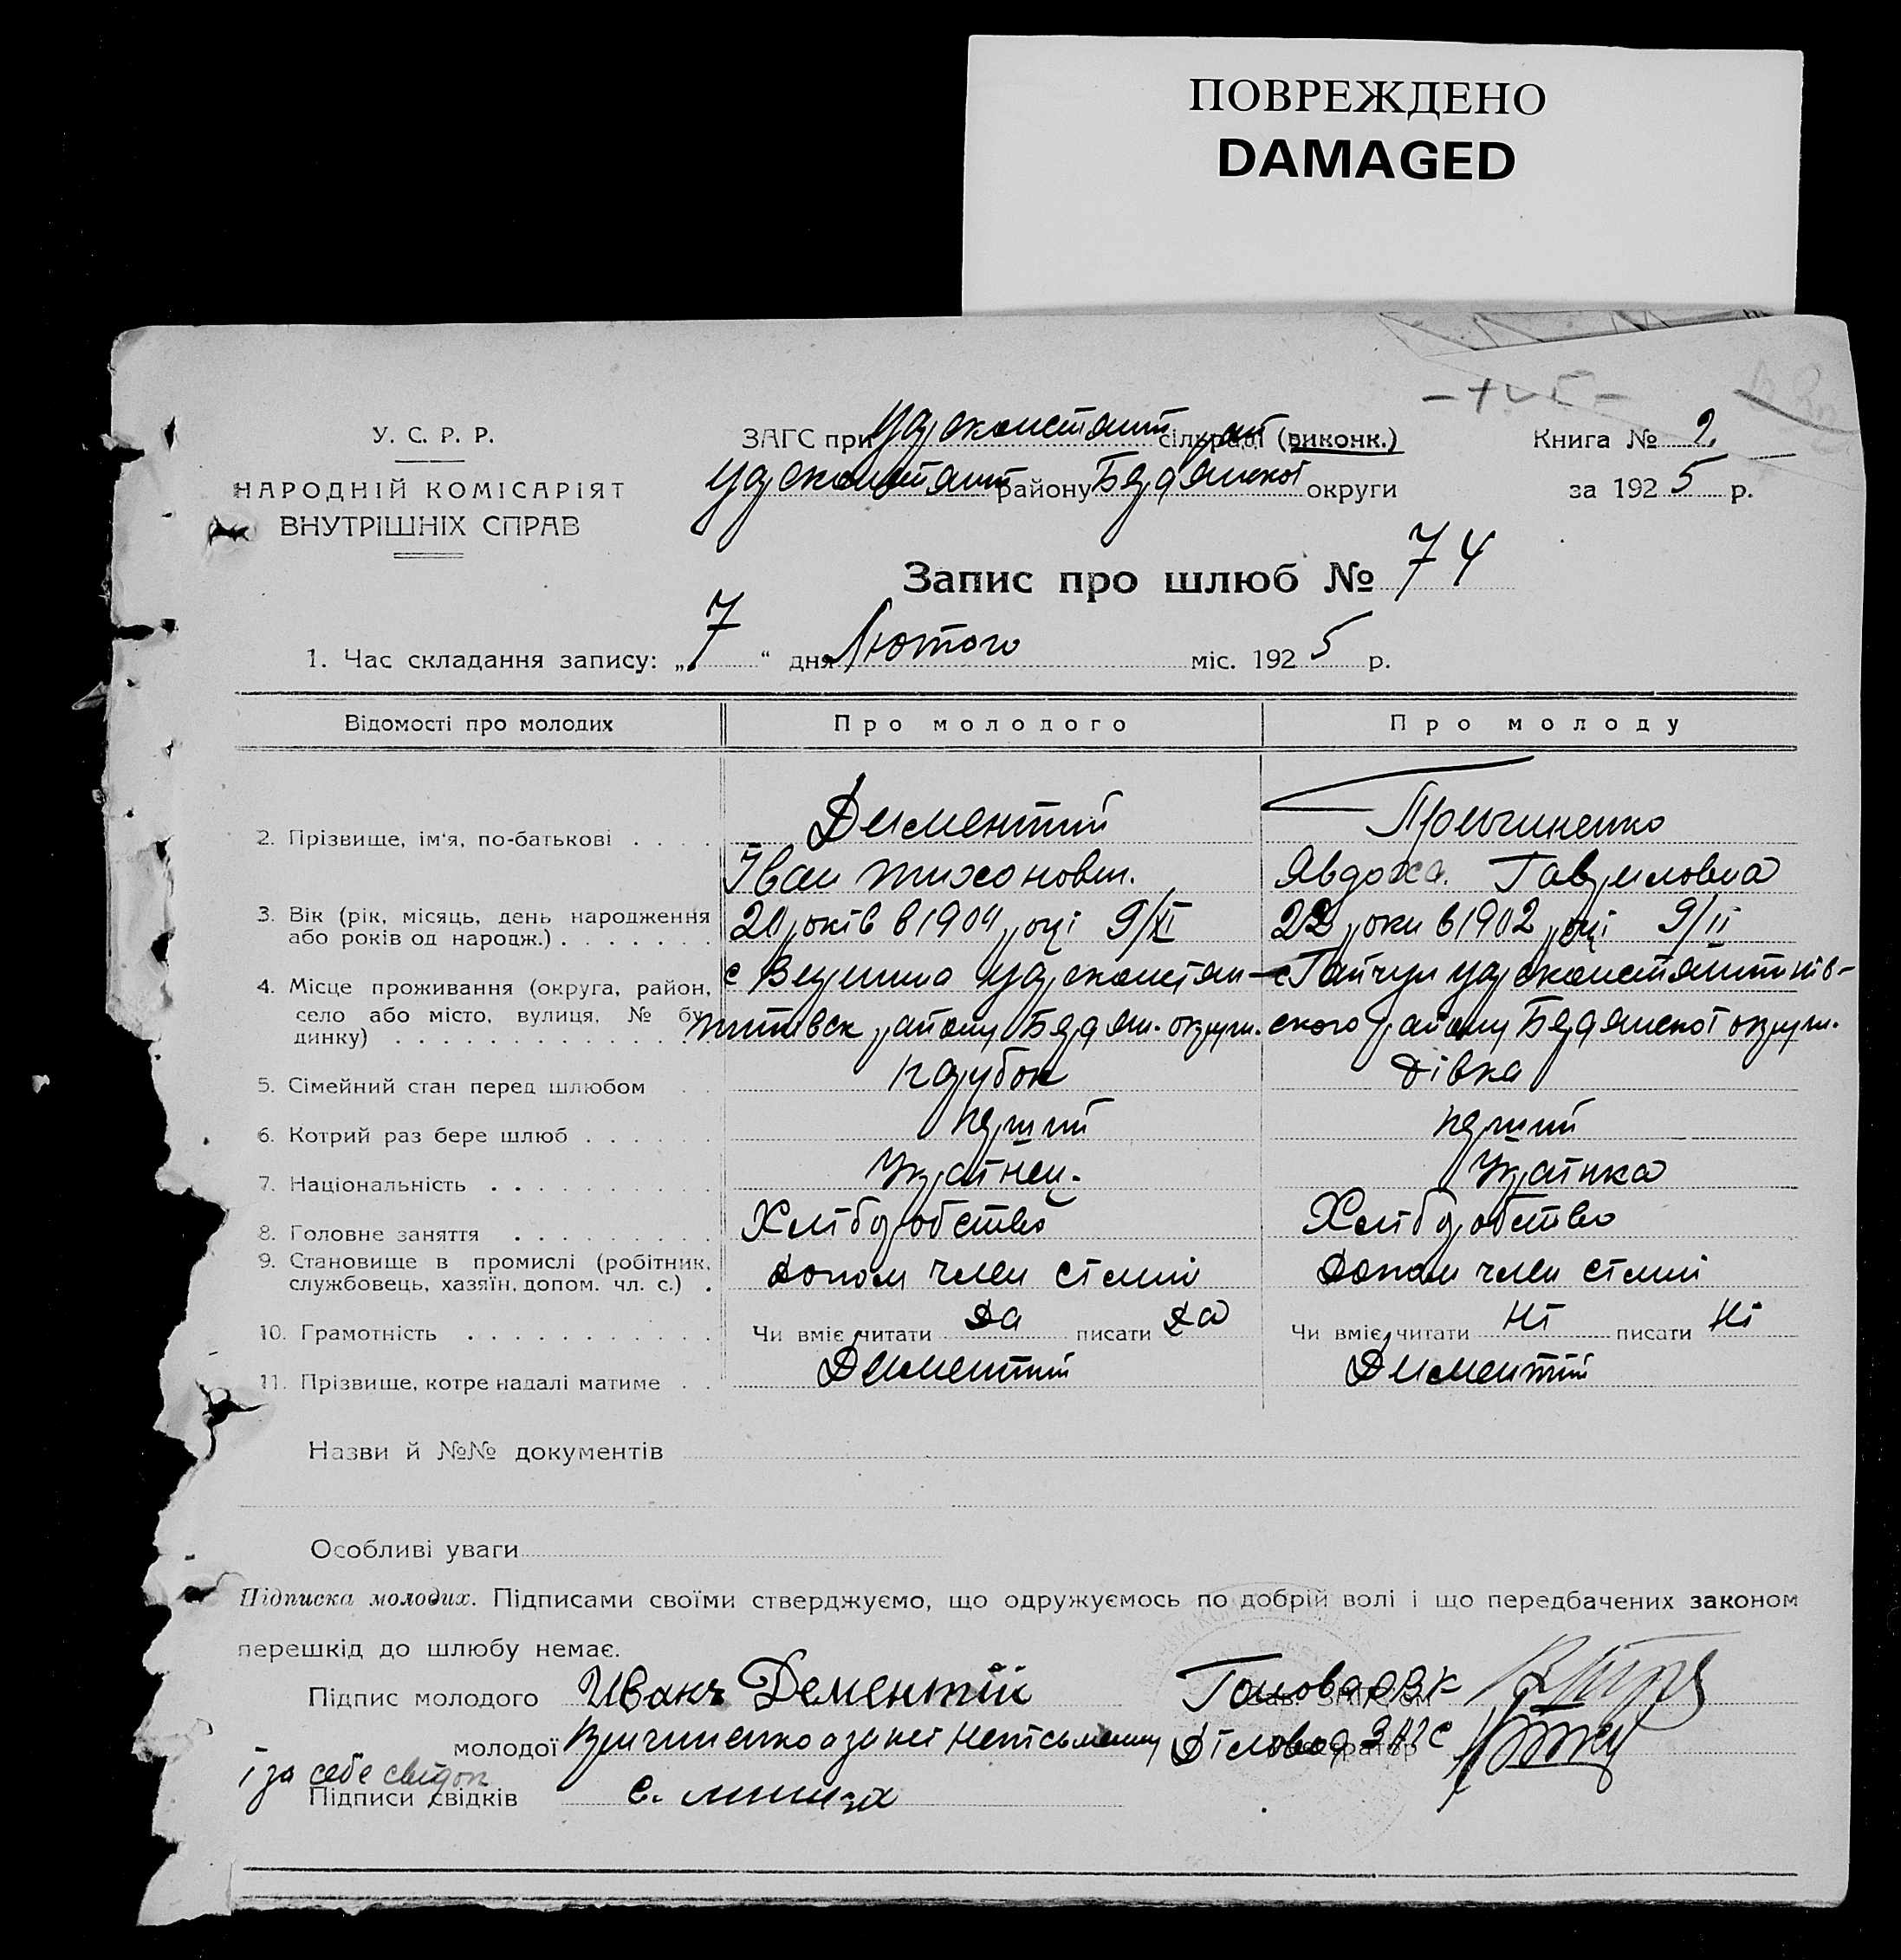 ПОВРЕЖДЕНО
DAMAGED
У. С. Р. Р.
НАРОДНІЙ КОМІСАРІЯТ
ВНУТРІШНІХ СПРАВ
ЗАГС при Цареконстант сільраді (виконк.)
Цареконстант району Бердянської округи
Книга № 2.
за 1925 р.
Запис про шлюб № 74
1. Час складання запису: „7“ дня Лютого міс. 1925 р.
Відомості про молодих
Про молодого
Про молоду
2. Прізвище, ім'я, по-батькові
Дементий
Іван Тихонович.
Явдоха Гавриловна
3. Вік (рік, місяць, день народження
або років од народж.)
20 років в 1904 році 9/XI
22 роки в 1902 році 9/II
4. Місце проживання (округа, район,
село або місто, вулиця, № бу-
динку)
с Цареконстан-
тинівск району Бердян. округи.
с Гайчул Цареконстянтинів-
ского району Бердянської округи.
5. Сімейний стан перед шлюбом
парубок
дівка
6. Котрий раз бере шлюб
перший
перший
7. Національність
Українец.
Українка
8. Головне заняття
Хліборобство
Хліборобство
9. Становище в промислі (робітник,
службовець, хазяїн, допом. чл. с.)
допом член сіммі
допом член сіммі
10. Грамотність
Чи вміє читати да писати да
Чи вміє читати Ні писати Ні
11. Прізвище, котре надалі матиме
Дементий
Дементий
Назви й №№ документів
Особливі уваги
Підписка молодих. Підписами своїми стверджуємо, що одружуємось по добрій волі і що передбачених законом
перешкід до шлюбу немає.
Підпис молодого Иванъ Дементій
Голова РВК
молодої а за неї неписьменну
Діловод ЗАГС
і за себе свідок
Підписи свідків